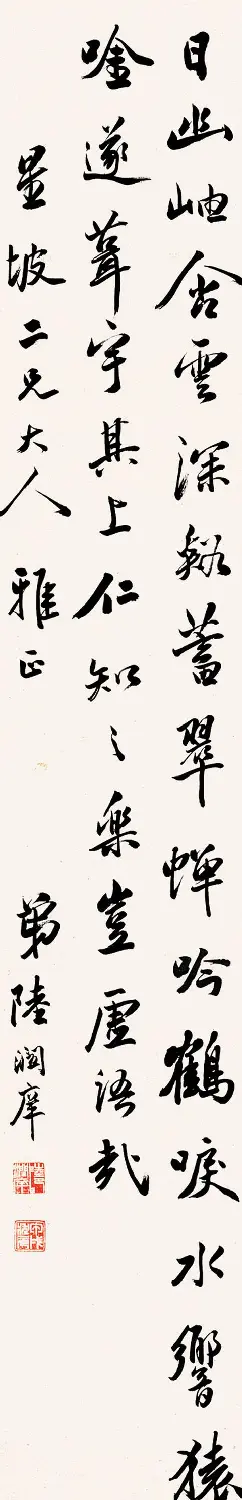 日幽岫含雲深谿蓄翠蟬吟鶴唳水響猿
唫遂葺宇其上仁知之樂豈虛語哉
星坡二兄大人 雅正 弟陸潤庠